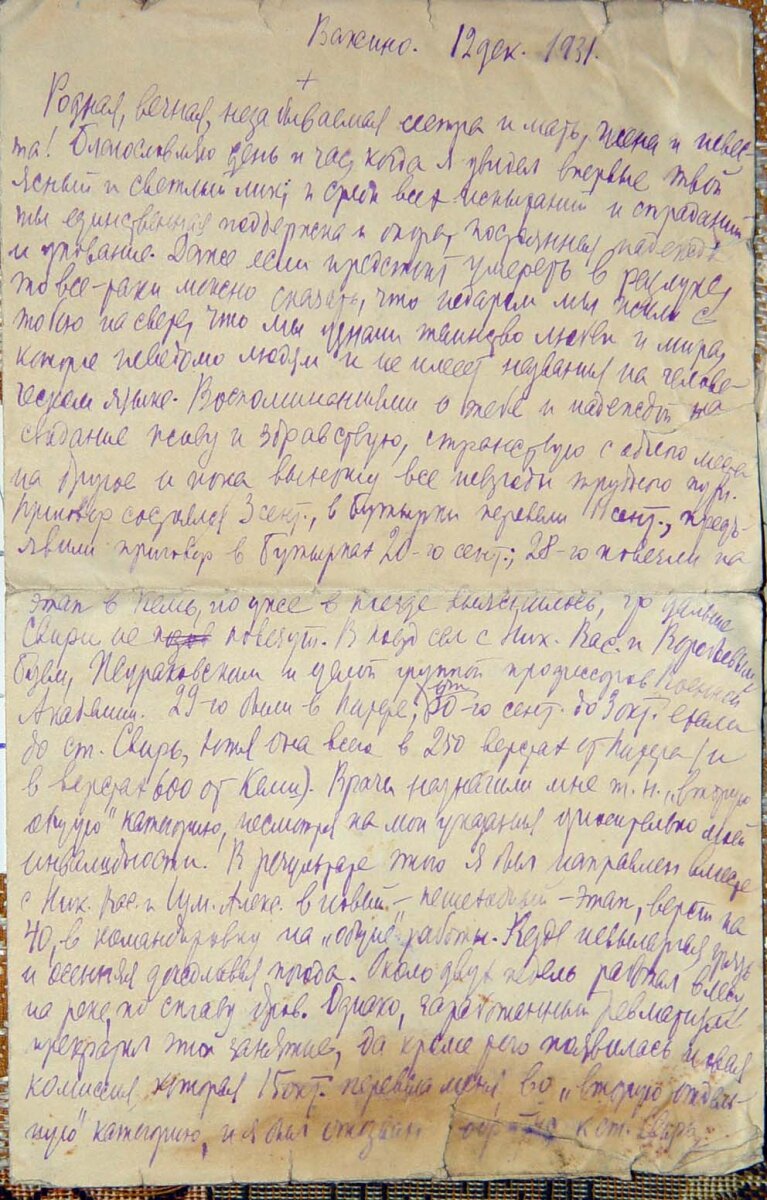 Важино. 12 дек. 1931.
+
Родная, вечная, незабываемая сестра и мать, жена и невес-
та! Благословляю день и час, когда я увидел впервые твой
ясный и светлый лик; и среди всех испытаний и страданий
ты единственная поддержка и опора, постоянная надежда
и упование. Даже если предстоит умереть в разлуке,
то все-таки можно сказать, что недаром мы жили с
тобою на свете, что мы узнали таинство любви и мира,
которое неведомо людям и не имеет названия на челове-
ческом языке. Воспоминаниями о тебе и надеждой на
свидание живу и здравствую, странствую с одного места
на другое и пока выношу все невзгоды трудного пути.
Приговор состоялся 3 сент., в Бутырки перевели 11 сент., предъ-
явили приговор в Бутырках 20-го сент.; 28-го повезли на
этап в Кемь, но уже в поезде выяснилось, что дальше
Свири не повезут. В поезд сел с Ник. Вас. и Воробьевым,
буем, Недраковским и целой группой профессоров Военной
Академии. 29-го были в Питере; от 30-го сент. до 3 окт. ехали
до ст. Свирь, хотя она всего в 250 верстах от Питера (и
в верстах 600 от Кеми). Врачи назначили мне т. н. „вторую
общую" категорию, несмотря на мои указания относительно моей
инвалидности. В результате этого я был направлен вместе
с Ник. Вас. и Алекс. в новый – пешеходный – этап, верст на
40, в командировку на „общие" работы. Везде невылазная грязь
и осенняя дождливая погода. Около двух недель работал в лесу
на реке, по сплаву дров. Однако, заработанный ревматизм
прекратил это занятие, да кроме того появилась новая
комиссия, которая 15 окт. перевела меня во „вторую отдель-
ную" категорию, и я был отозван обратно к ст. Свирь.